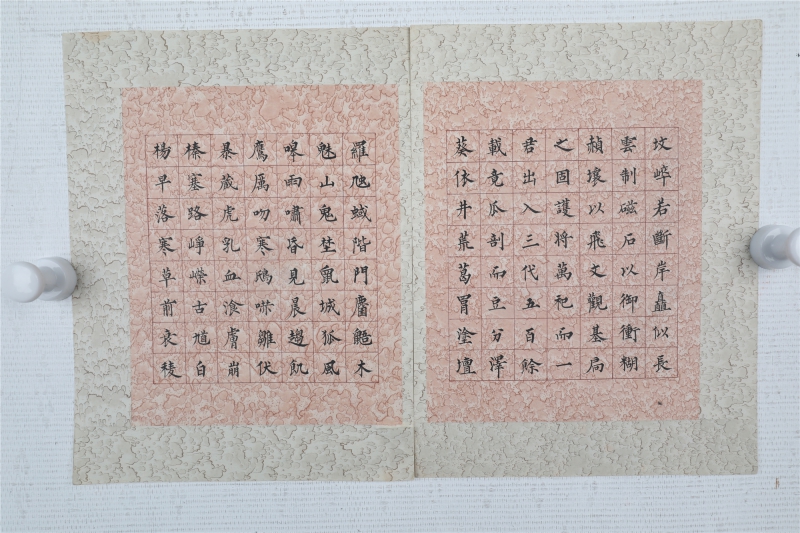 坟崪若斷岸矗似長
雲制磁石以御衝糊
赬壞以飛文觀基局
之固護將萬祀而一
君出入三代五百餘
載竟瓜剖而豆分澤
葵依井荒葛冒塗壇
羅虺蜮階門麕鼯木
魅山鬼埜鼠城狐風
嗥雨嘯昏見晨趨飢
鷹厲吻寒鴟嚇雛伏
暴藏虎乳血飡膚崩
榛塞路崢嶸古馗白
楊早落寒草前衰稜